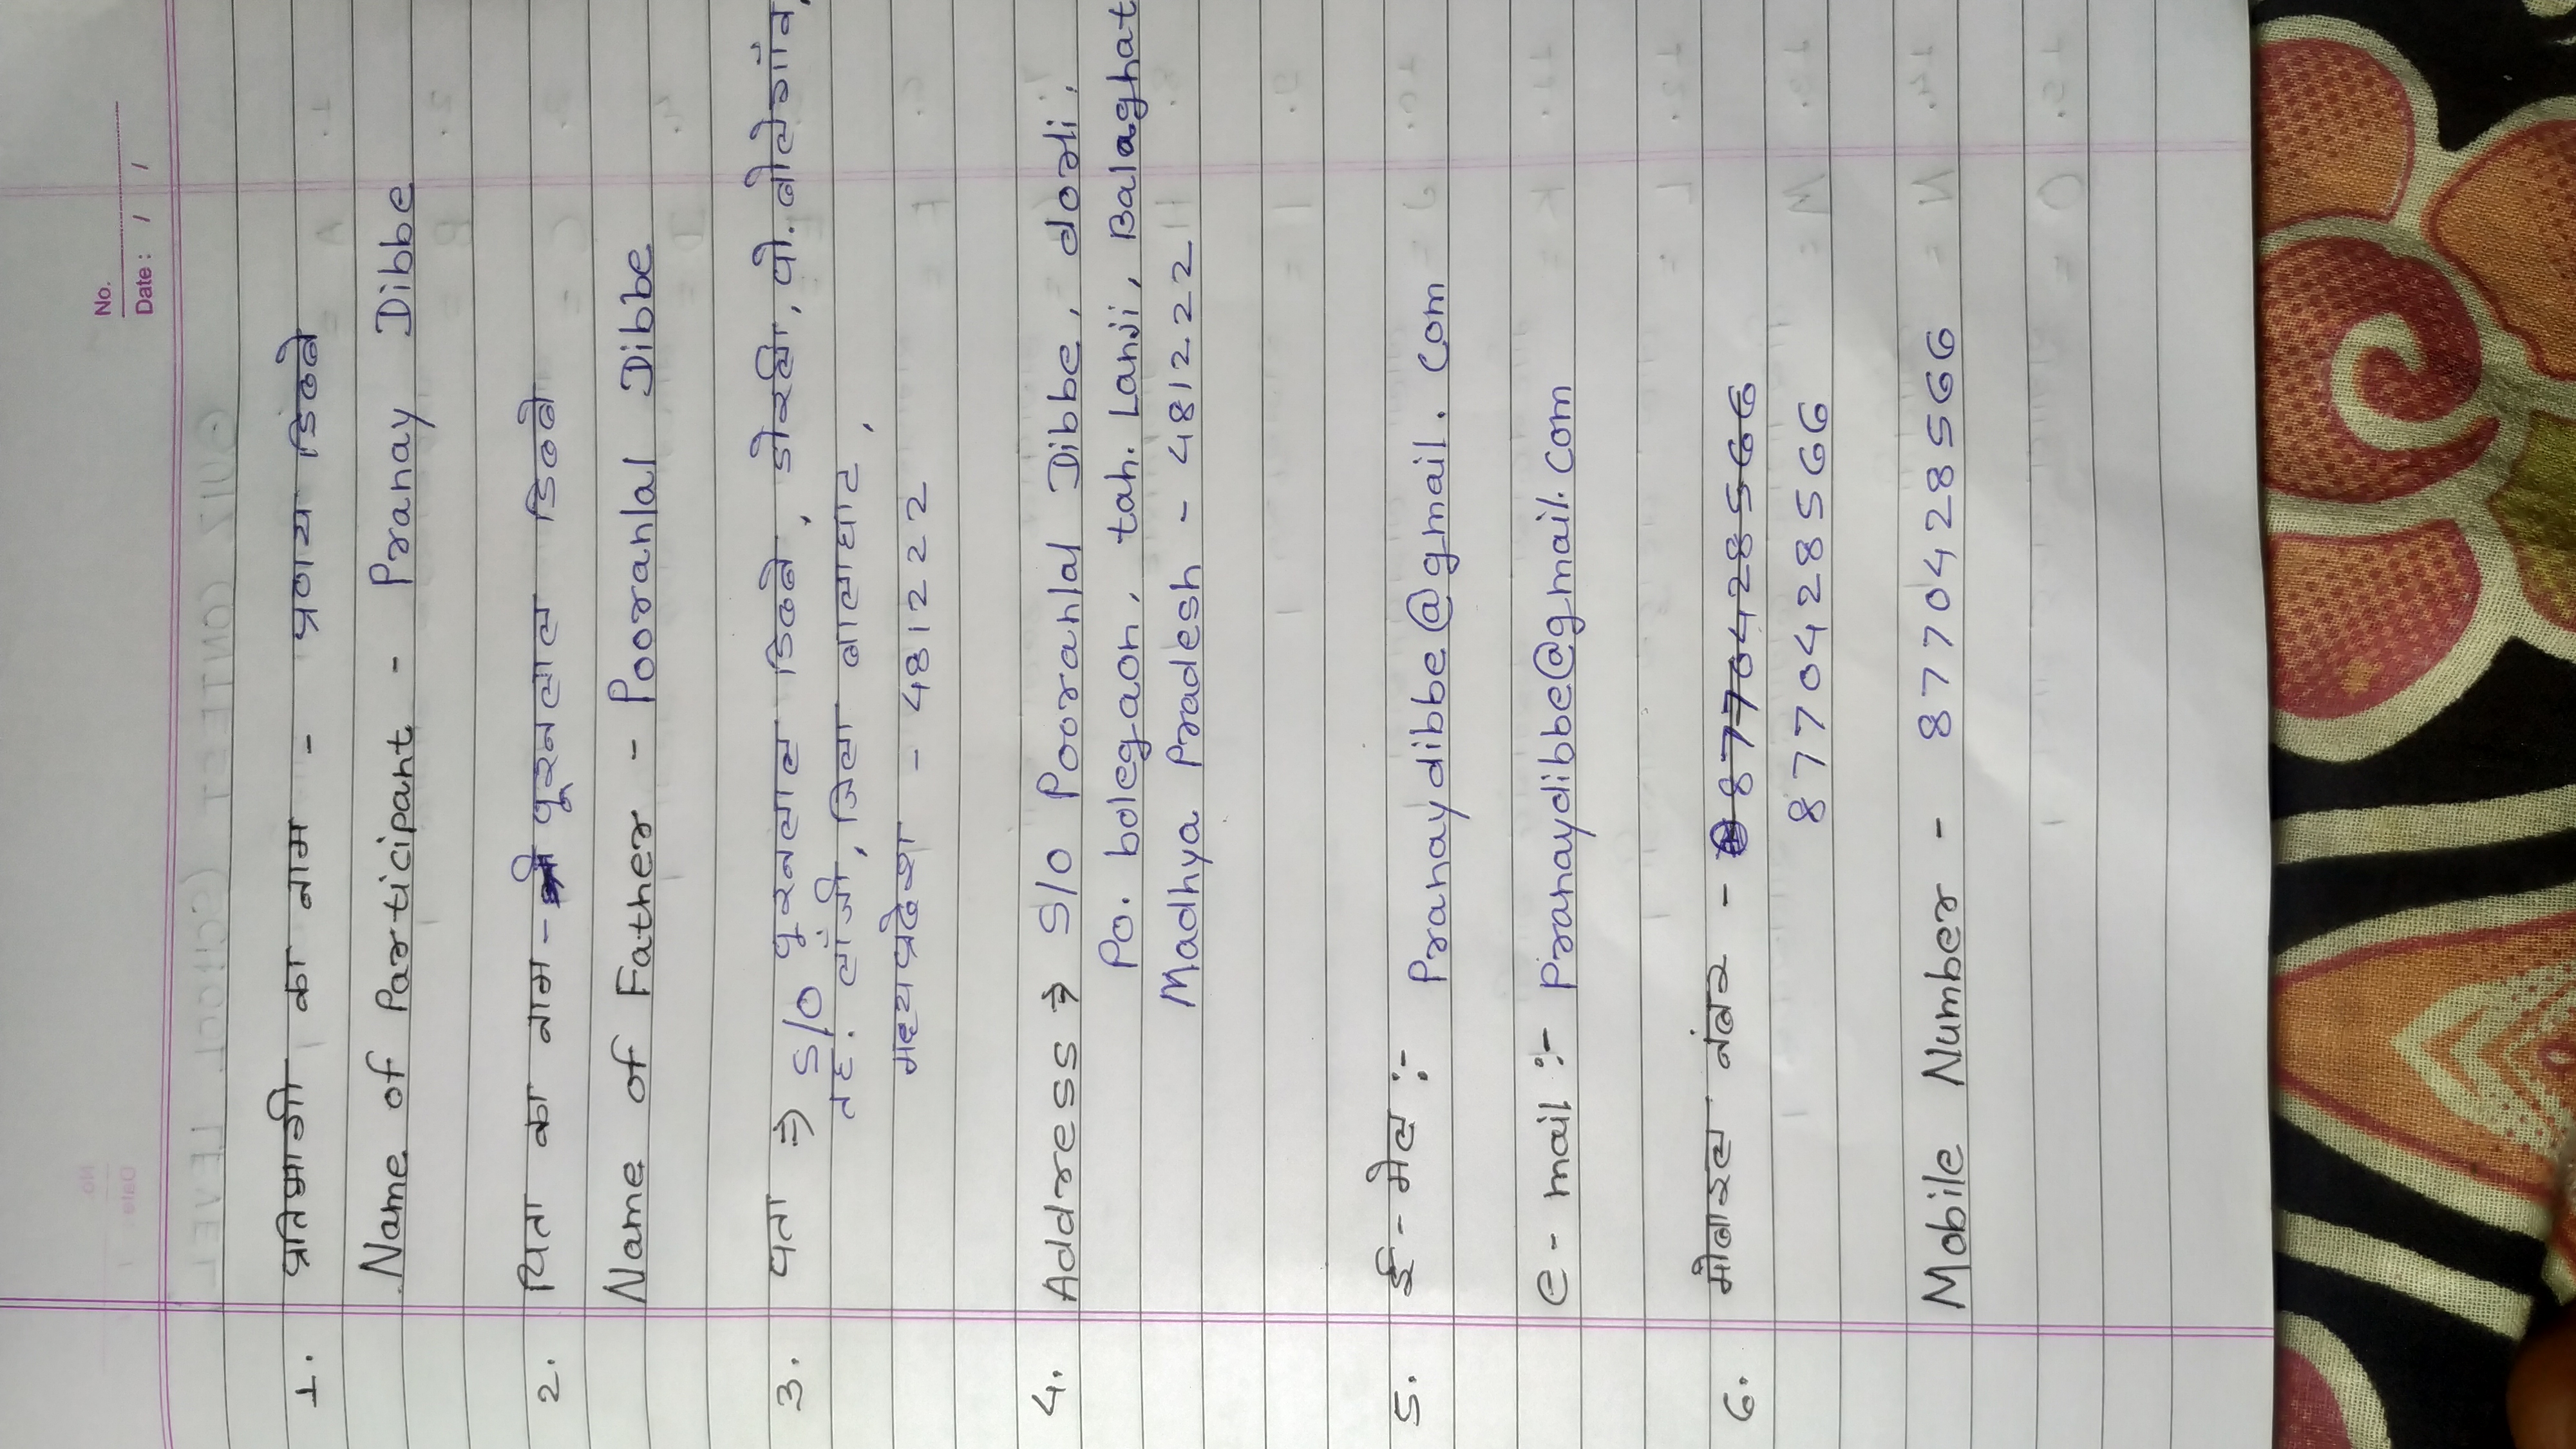 No.
Date : / /
1. प्रतिभागी का नाम - प्रणय डिब्बे
Name of Participant - Pranay Dibbe
2. पिता का नाम - पूरनलाल डिब्बे
Name of Father - Pooranlal Dibbe
3. पता ⇒ S/O पूरनलाल डिब्बे, डोरली, पो. बोलेगाँव,
तह. लाँजी, जिला बालाघाट,
मध्यप्रदेश - 481222
4. Address ⇒ S/O Pooranlal Dibbe, dorli,
Po. bolegaon, tah. Lanji, Balaghat
Madhya Pradesh - 481222
5. ई-मेल :- Pranaydibbe@gmail.com
e-mail :- Pranaydibbe@gmail.com
6. मोबाइल नंबर - 8770428566
8770428566
Mobile Number - 8770428566